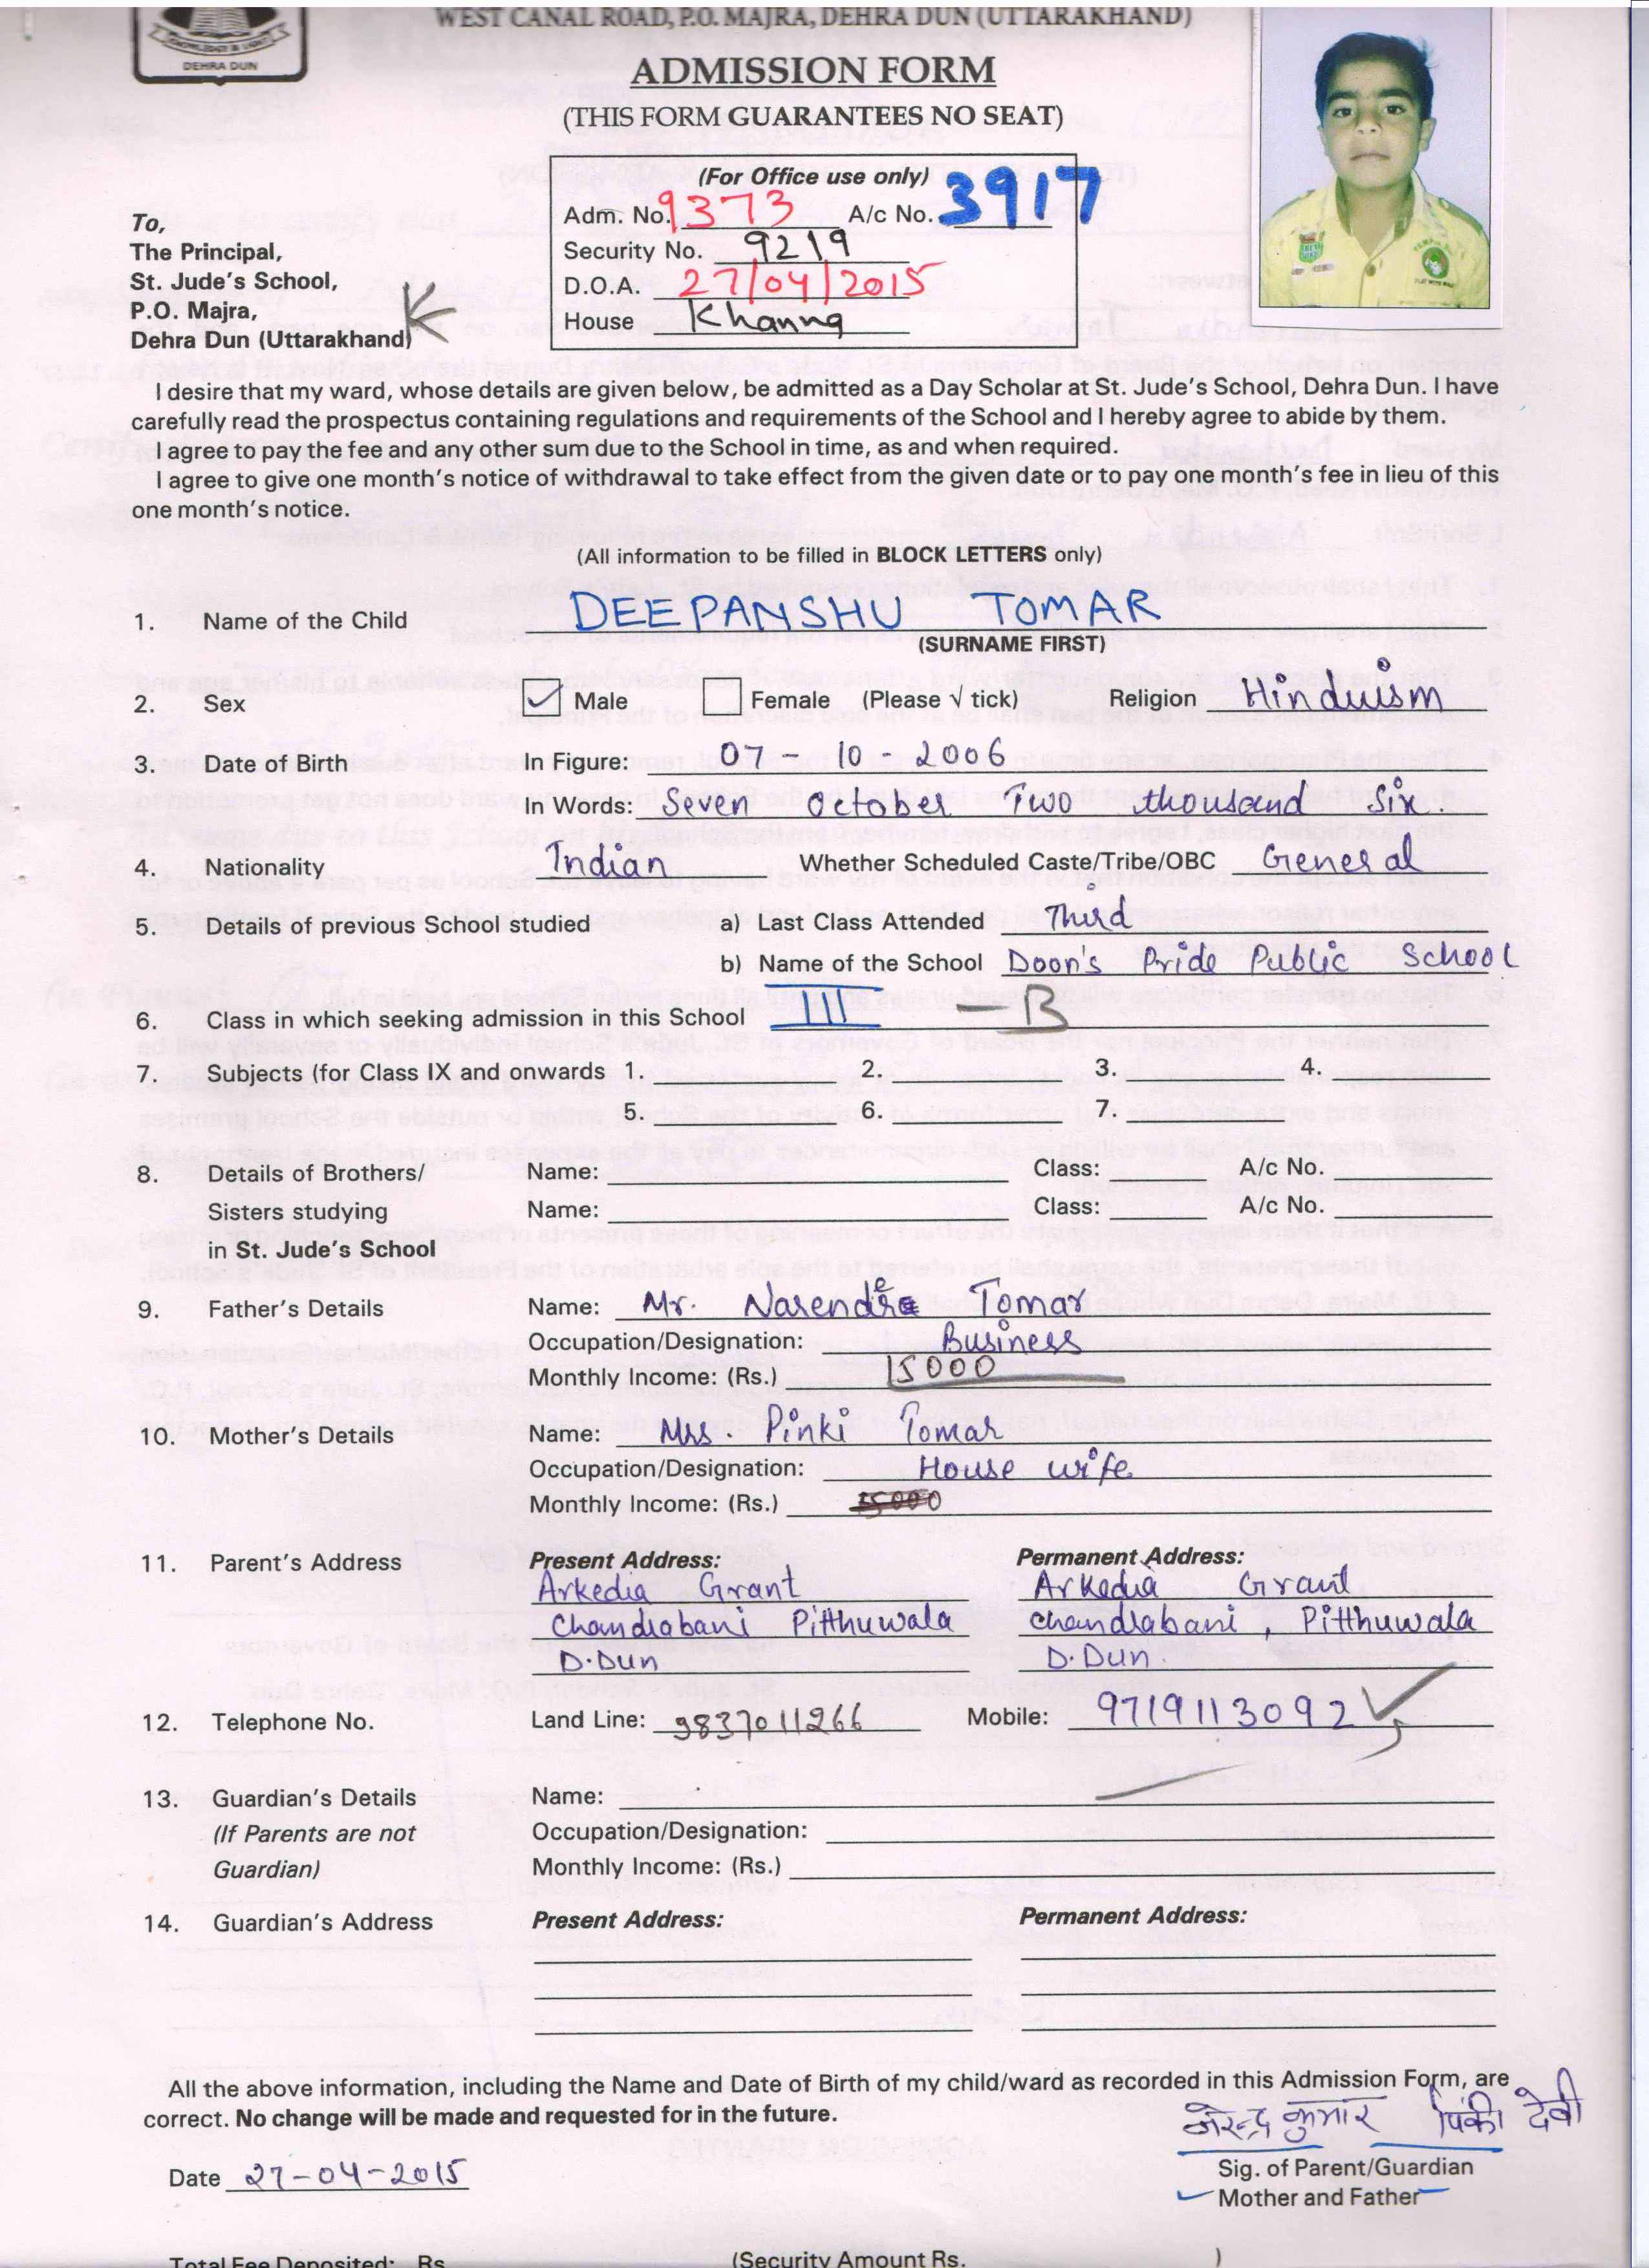 WEST CANAL ROAD, P.O. MAJRA, DEHRA DUN (UTTARAKHAND)
DEHRA DUN
ADMISSION FORM
(THIS FORM GUARANTEES NO SEAT)
(For Office use only)
Adm. No. 9373 A/c No. 3917
Security No. 9219
D.O.A. 27/04/2015
House Khanna
To,
The Principal,
St. Jude's School,
P.O. Majra,
Dehra Dun (Uttarakhand)
I desire that my ward, whose details are given below, be admitted as a Day Scholar at St. Jude's School, Dehra Dun. I have
carefully read the prospectus containing regulations and requirements of the School and I hereby agree to abide by them.
I agree to pay the fee and any other sum due to the School in time, as and when required.
I agree to give one month's notice of withdrawal to take effect from the given date or to pay one month's fee in lieu of this
one month's notice.
(All information to be filled in BLOCK LETTERS only)
1. Name of the Child DEEPANSHU TOMAR
(SURNAME FIRST)
2. Sex Male Female (Please √ tick) Religion Hinduism
3. Date of Birth In Figure: 07 - 10 - 2006
In Words: Seven October Two thousand Six.
4. Nationality Indian Whether Scheduled Caste/Tribe/OBC General
5. Details of previous School studied a) Last Class Attended Third
b) Name of the School Doon's Pride Public School
6. Class in which seeking admission in this School III - B
7. Subjects (for Class IX and onwards 1. 2. 3. 4.
5. 6. 7.
8. Details of Brothers/ Name: Class: A/c No.
Sisters studying Name: Class: A/c No.
in St. Jude's School
9. Father's Details Name: Mr. Narendre Tomar
Occupation/Designation: Business
Monthly Income: (Rs.) 15000
10. Mother's Details Name: Mrs. Pinki Tomar
Occupation/Designation: House wife
Monthly Income: (Rs.)
11. Parent's Address Present Address: Permanent Address:
Arkedia Grant Arkedia Grant
Chandrabani Pitthuwala chandrabani, Pitthuwala
D.Dun D.Dun.
12. Telephone No. Land Line: 9837011266 Mobile: 9719113092
13. Guardian's Details Name:
(If Parents are not Occupation/Designation:
Guardian) Monthly Income: (Rs.)
14. Guardian's Address Present Address: Permanent Address:
All the above information, including the Name and Date of Birth of my child/ward as recorded in this Admission Form, are
correct. No change will be made and requested for in the future.
नरेन्द्र कुमार पिंकी देवी
Date 27-04-2015
Sig. of Parent/Guardian
Mother and Father
Total Fee Deposited: Rs. (Security Amount Rs. )